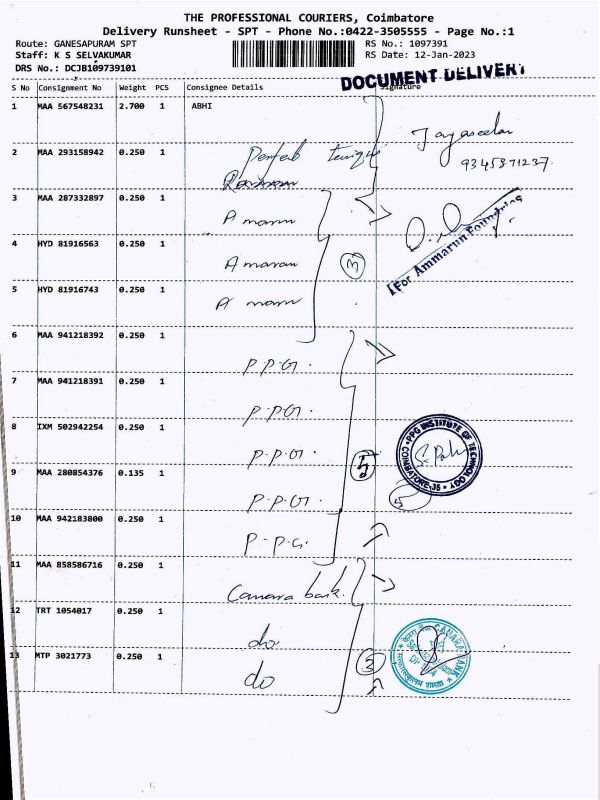 THE PROFESSIONAL COURIERS, Coimbatore
Delivery Runsheet - SPT - Phone No.:0422-3505555 - Page No.:1
Route: GANESAPURAM SPT
Staff: K S SELVAKUMAR
DRS No.: DCJB109739101
RS No.: 1097391
RS Date: 12-Jan-2023
DOCUMENT DELIVERY
S No Consignment No Weight PCS Consignee Details Signature
1 MAA 567548231 2.700 1 ABHI
Jayaseelan
9345871237
2 MAA 293158942 0.250 1 Perfect
3 MAA 287332897 0.250 1 Amarun
4 HYD 81916563 0.250 1 Amaran
[For Ammarun Foundries
3
5 HYD 81916743 0.250 1 A mam
6 MAA 941218392 0.250 1 P.P.G.
7 MAA 941218391 0.250 1 P.P.G.
8 IXM 502942254 0.250 1 P.P.G.
PPG INSTITUTE OF TECHNOLOGY
COIMBATORE-35
5
9 MAA 280854376 0.135 1 P.P.G.
5
10 MAA 942183800 0.250 1 P-P.G.
11 MAA 858586716 0.250 1 Canara bank.
12 TRT 1054017 0.250 1 do
CANARA BANK
13 MTP 3021773 0.250 1 do
3